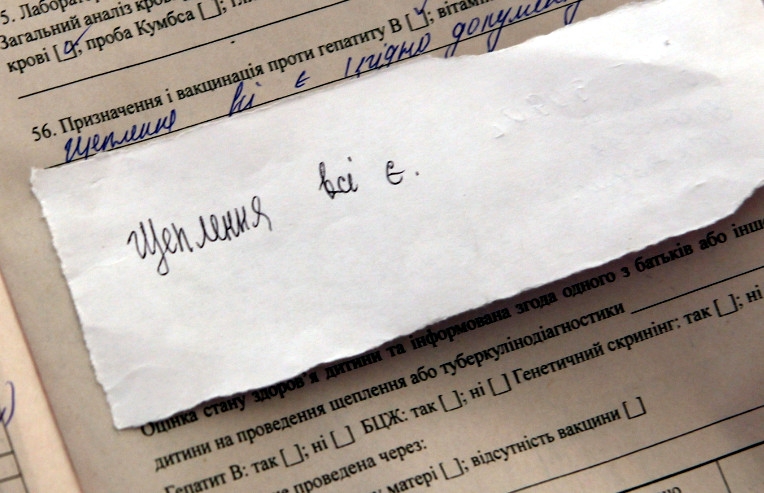 5. Лаборатор
Загальний аналіз кров
крові [ ]; проба Кумбса [ ];
56. Призначення і вакцинація проти гепатиту В [ ]; вітамін
Щеплення всі є згідно документ
Щеплення всі є.
Оцінка стану здоров'я дитини та інформована згода одного з батьків або інш
дитини на проведення щеплення або туберкулінодіагностики
Гепатит В: так [ ]; ні [ ] БЦЖ: так [ ]; ні [ ] Генетичний скринінг: так [ ]; ні
не проведена через:
матері [ ]; відсутність вакцини [ ]